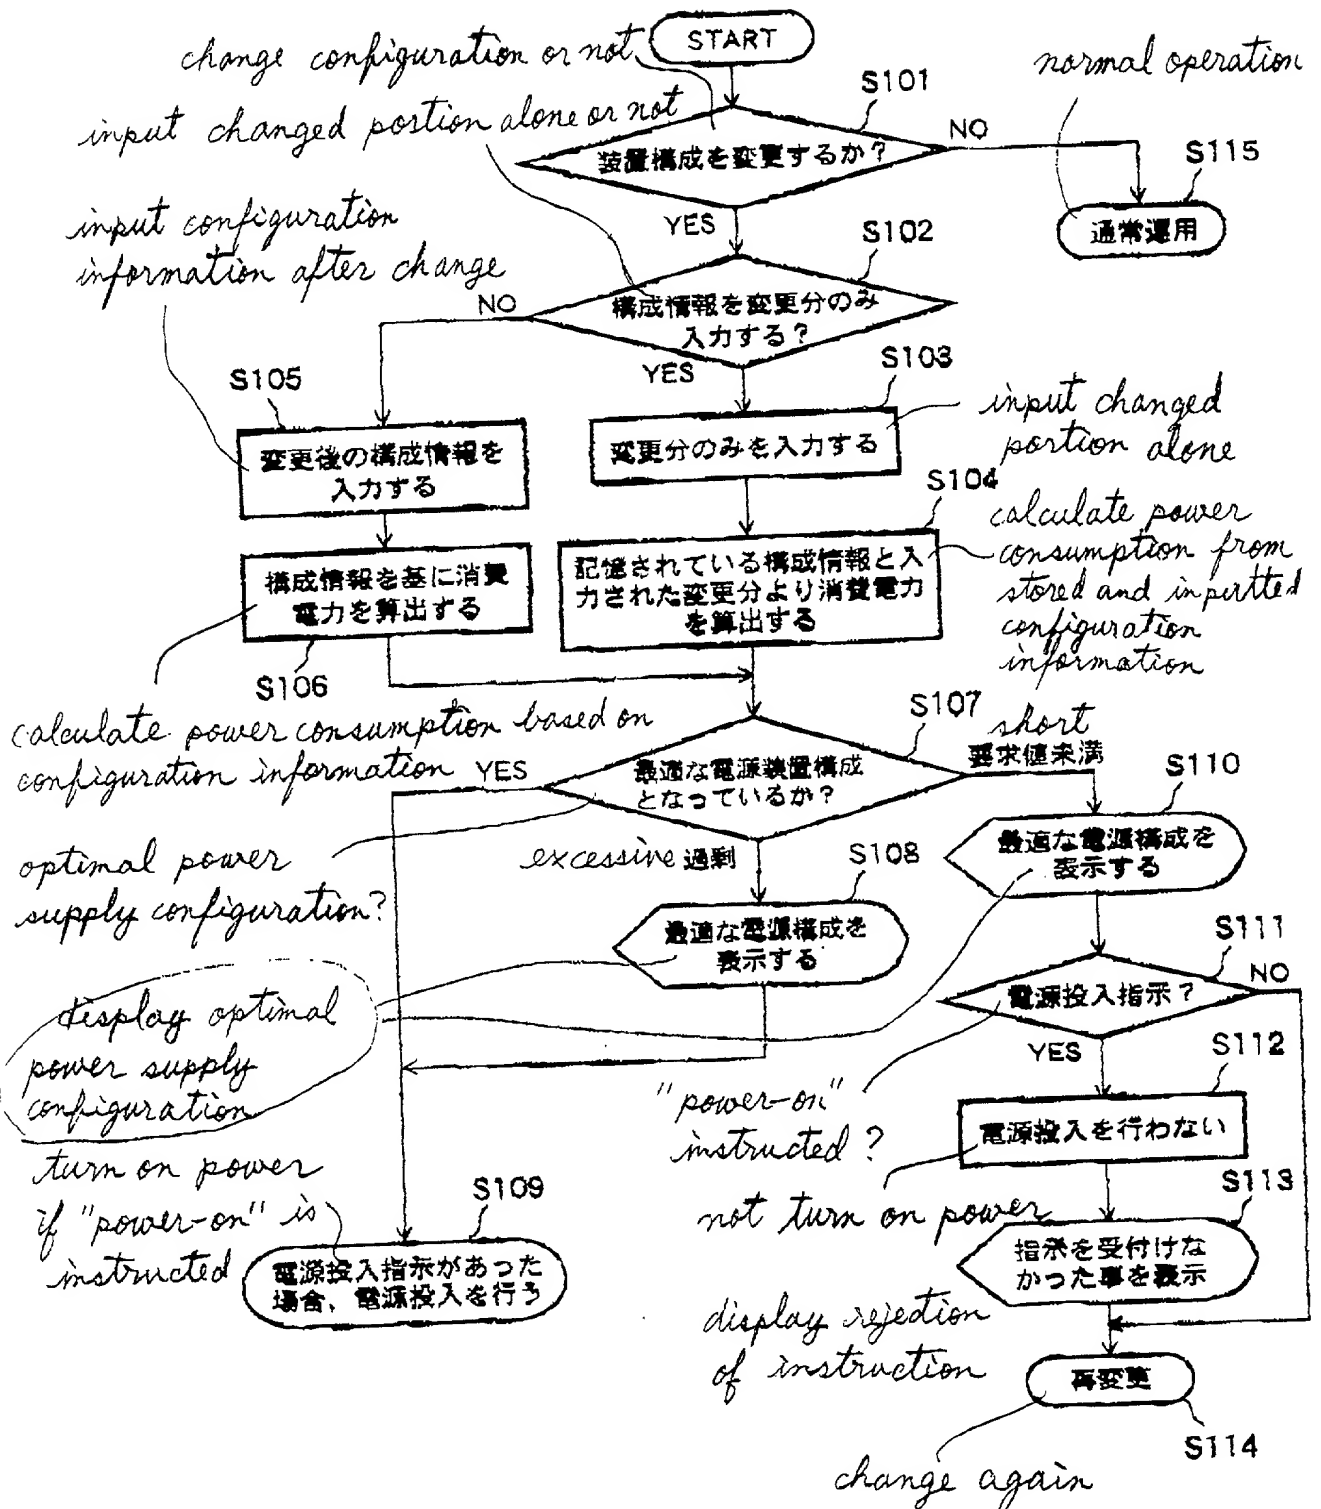 START
change configuration or not
normal operation
S101
input changed portion alone or not
NO
装置構成を変更するか?
S115
YES
通常運用
input configuration
information after change
S102
NO
構成情報を変更分のみ
入力する?
S103
YES
S105
input changed
portion alone
変更後の構成情報を
入力する
変更分のみを入力する
S104
calculate power
consumption from
stored and inputted
configuration
information
構成情報を基に消費
電力を算出する
記憶されている構成情報と入
力された変更分より消費電力
を算出する
S106
S107
calculate power consumption based on
configuration information
short
要求値未満
YES
最適な電源装置構成
となっているか?
S110
最適な電源構成を
表示する
optimal power
supply configuration?
excessive 過剰
S108
最適な電源構成を
表示する
S111
NO
電源投入指示?
display optimal
power supply
configuration
YES
S112
"power-on"
instructed?
電源投入を行わない
turn on power
if "power-on" is
instructed
S109
S113
not turn on power
電源投入指示があった
場合、電源投入を行う
指示を受付けな
かった事を表示
display rejection
of instruction
再変更
S114
change again